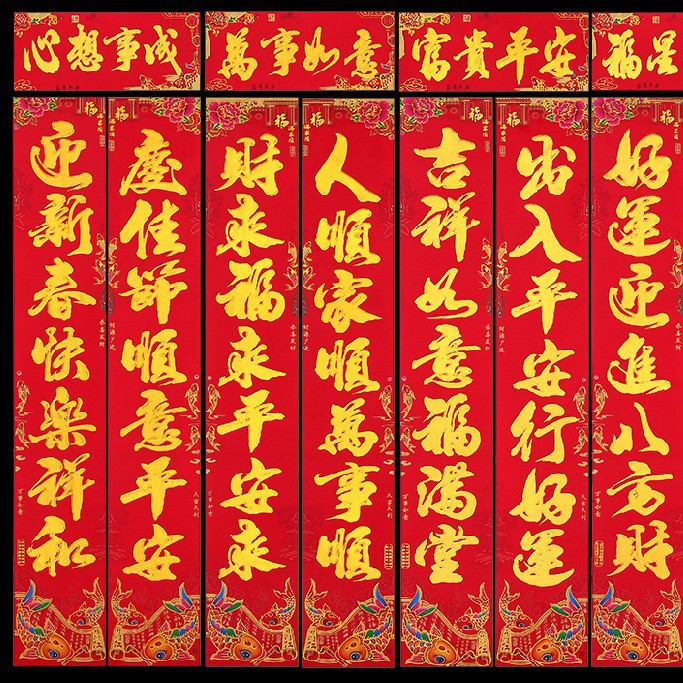 心想事成
萬事如意
富貴平安
福星
迎新春快樂祥和
慶佳節順意平安
財來福來平安來
人順家順萬事順
吉祥如意福滿堂
出入平安行好運
好運迎進八方財
福
福
福
福
福
福
福